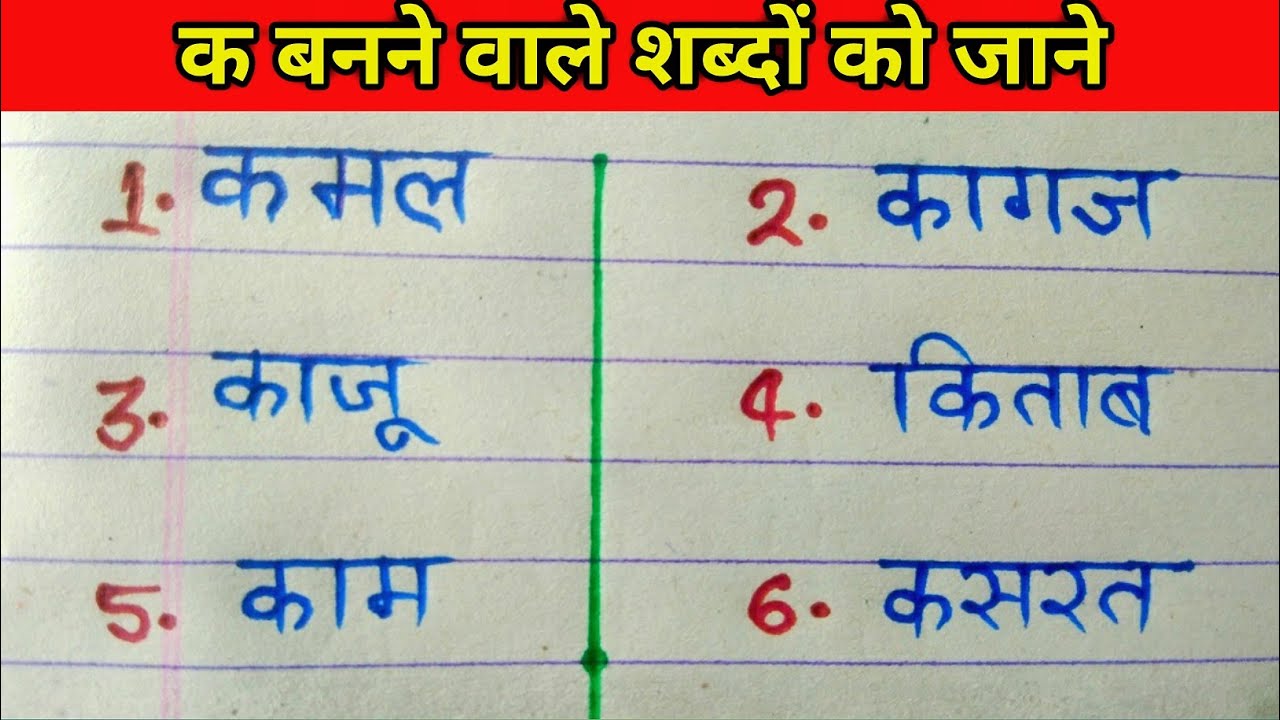 क बनने वाले शब्दों को जाने
1. कमल 2. कागज
3. काजू 4. किताब
5. काम 6. कसरत